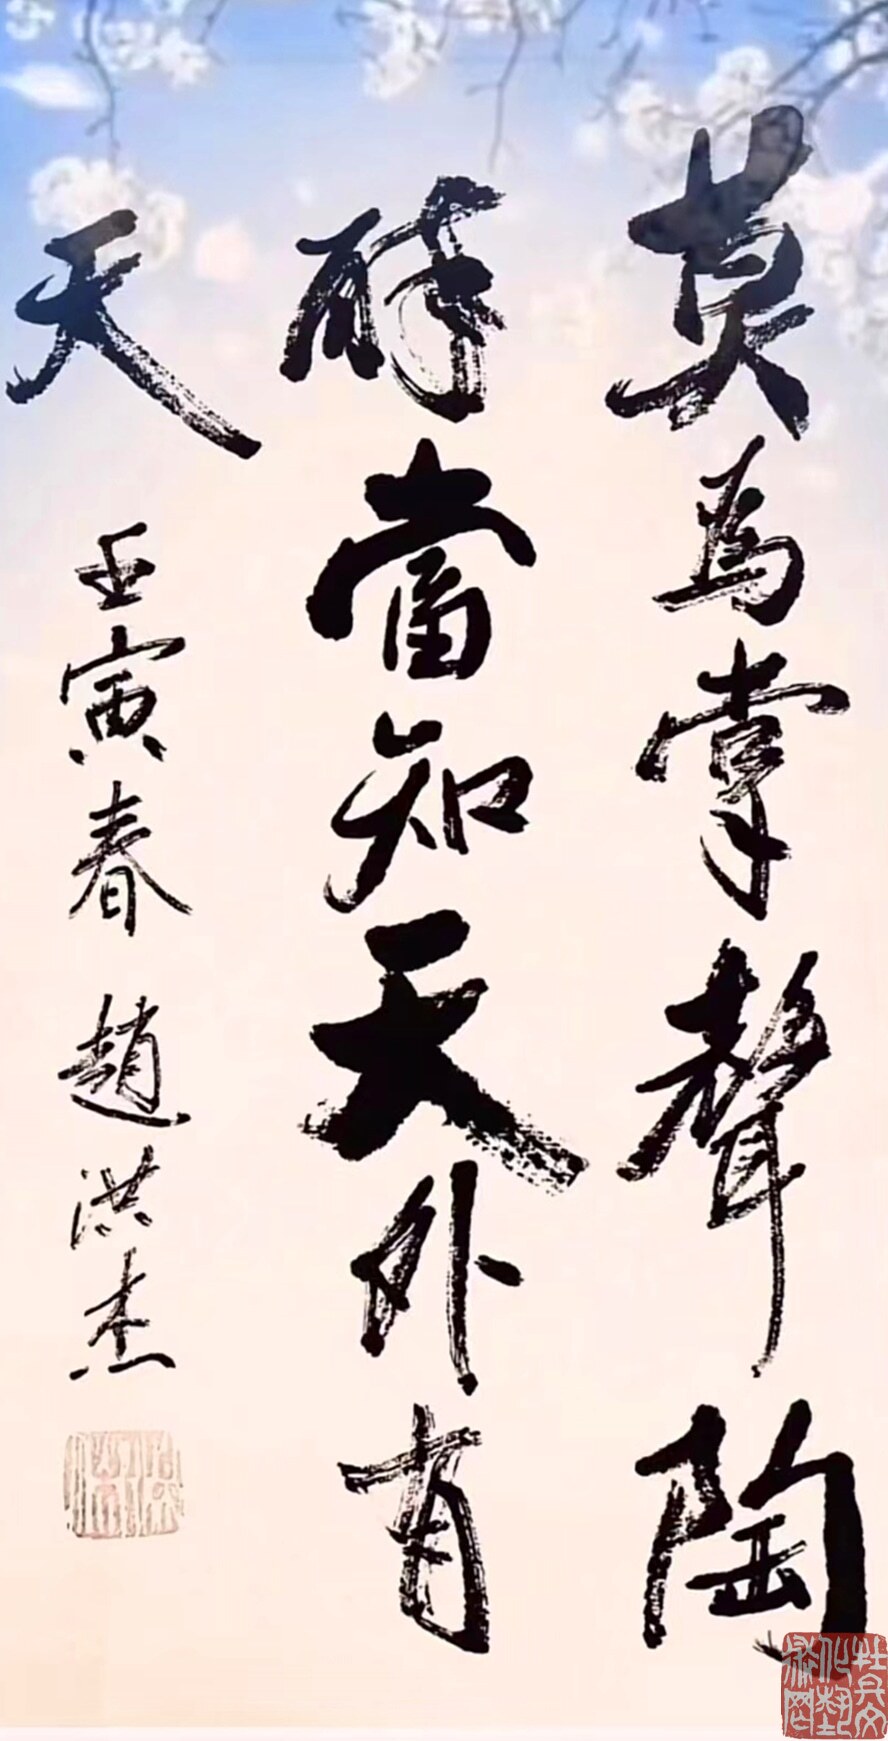 莫為掌聲陶
醉當知天外有
天
壬寅春 趙洪杰